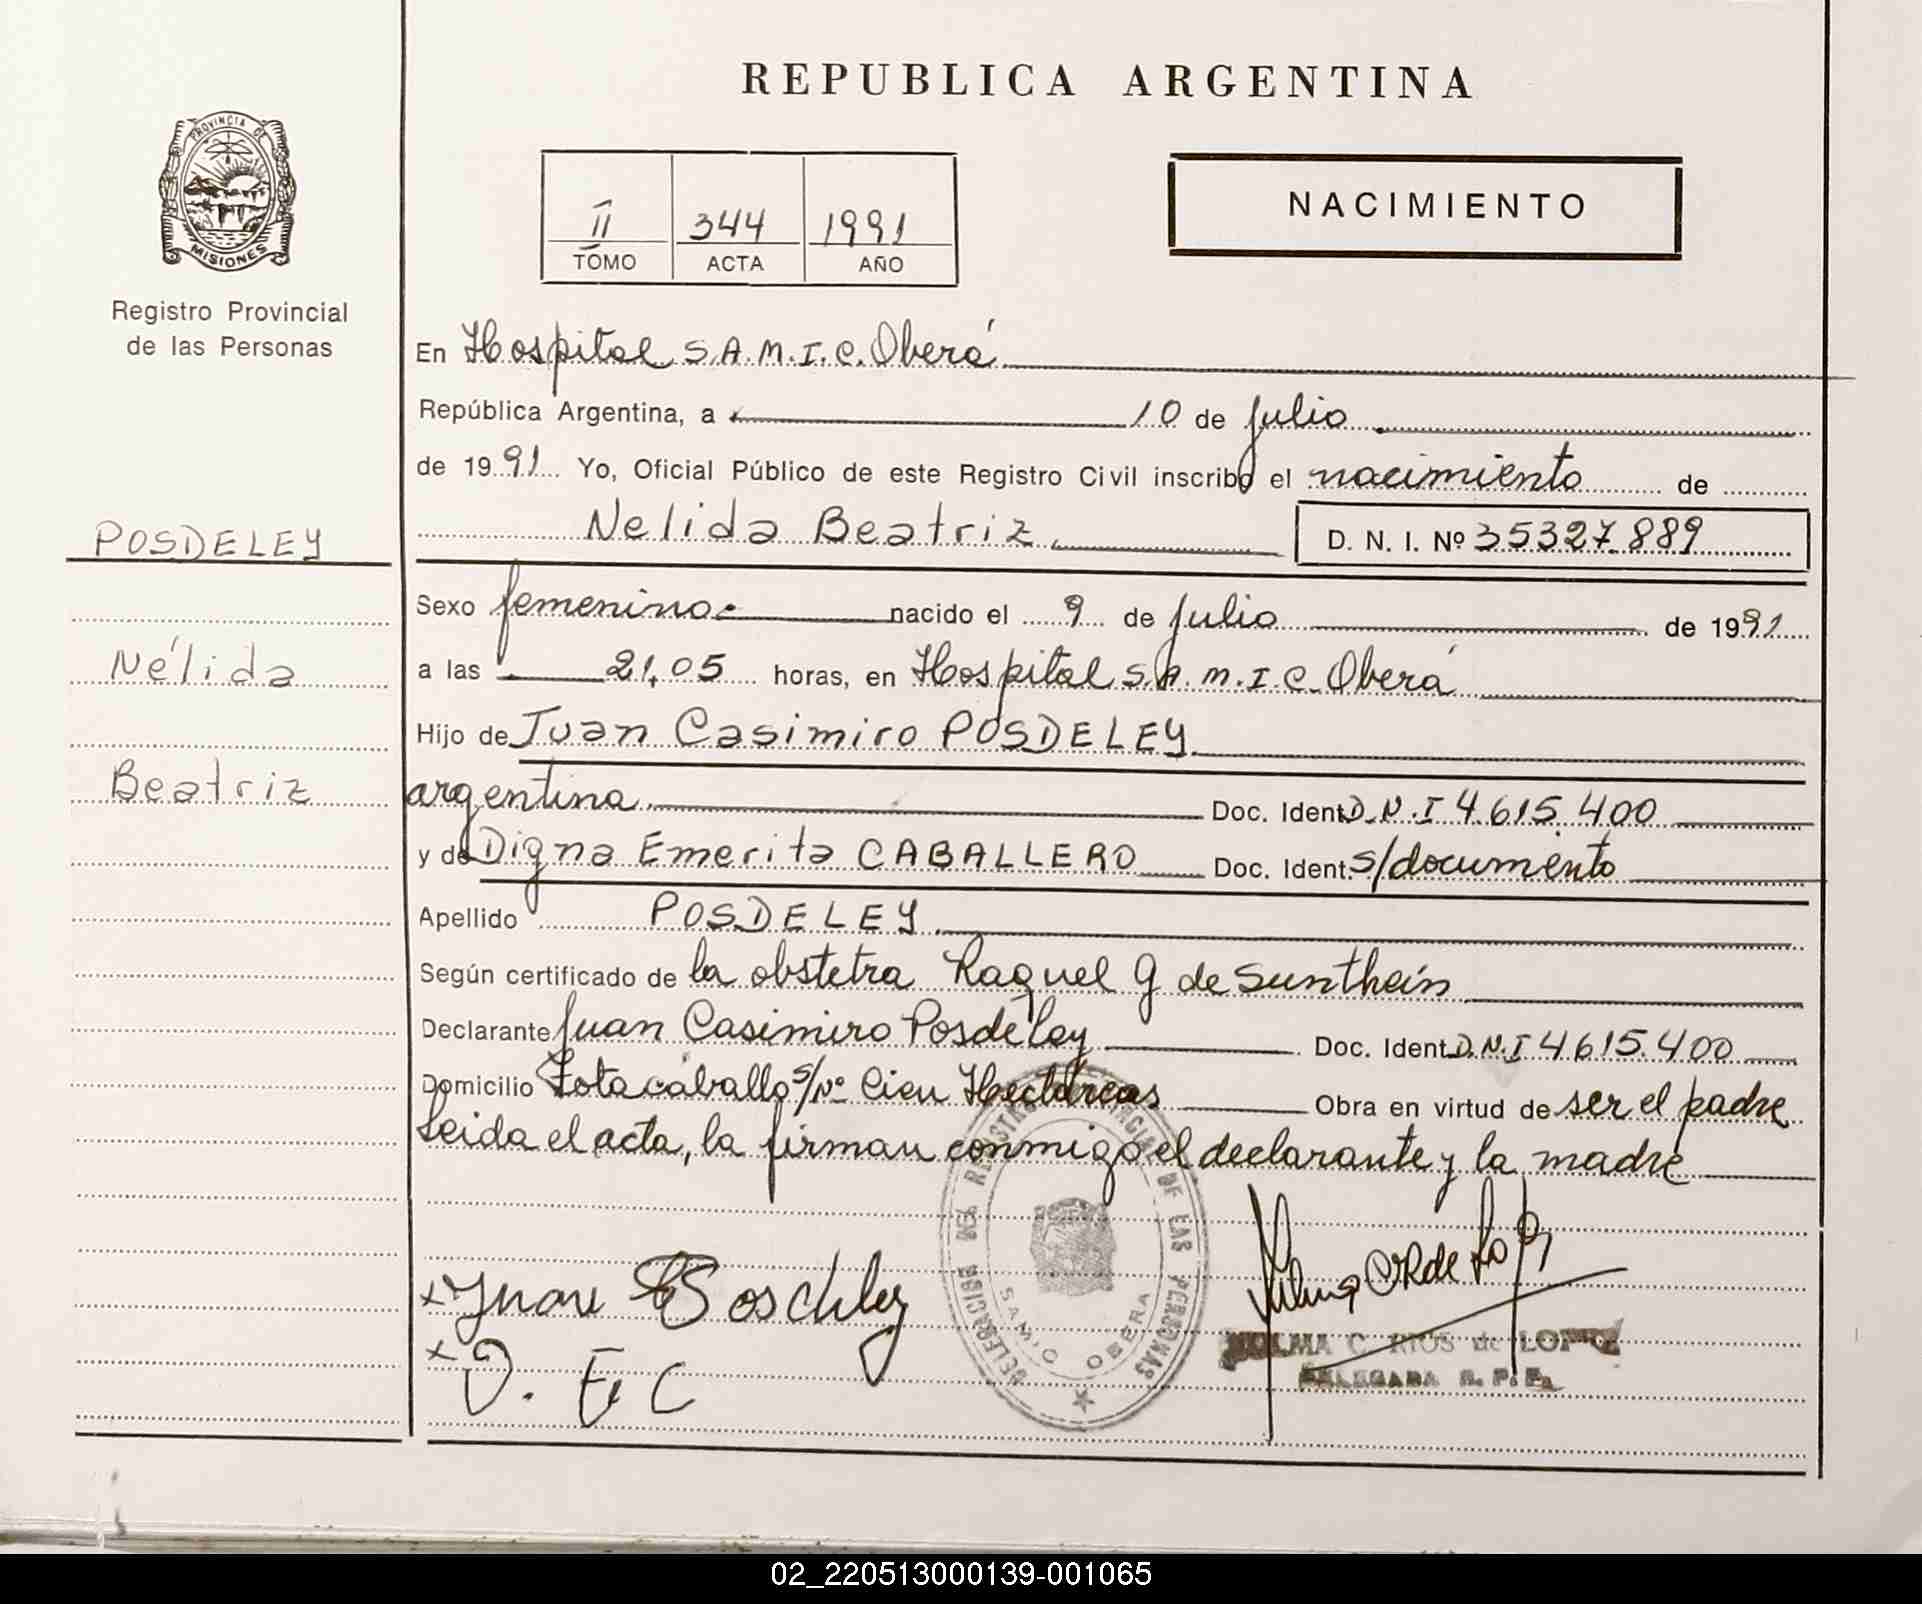 REPUBLICA ARGENTINA
PROVINCIA DE
MISIONES
Registro Provincial
de las Personas
II 344 1991
TOMO ACTA AÑO
NACIMIENTO
POSDELEY
Nélida
Beatriz
En Hospital S.A.M.I.C. Oberá
República Argentina, a 10 de julio
de 1991 Yo, Oficial Público de este Registro Civil inscribo el nacimiento de
Nelida Beatriz. D. N. I. Nº 35327889
Sexo femenino. nacido el 9 de julio de 1991
a las 21,05 horas, en Hospital S.A.M.I.C. Oberá
Hijo de Juan Casimiro POSDELEY
argentina Doc. Ident D.N.I 4.615.400
y de Digna Emerita CABALLERO Doc. Ident. s/documento
Apellido POSDELEY
Según certificado de la obstetra Raquel G de Sunthein
Declarante Juan Casimiro Posdeley Doc. Ident. D.N.I 4615.400
Domicilio caballo s/Nº Cien Hectáreas Obra en virtud de ser el padre
Leida el acta, la firman conmigo el declarante y la madre
DELEGACION DEL REGISTRO PROVINCIAL DE LAS PERSONAS
SAMIC OBERA
x Juan
x D. E C
C. RIOS de LOPEZ
DELEGADA R. P. P.
02_220513000139-001065